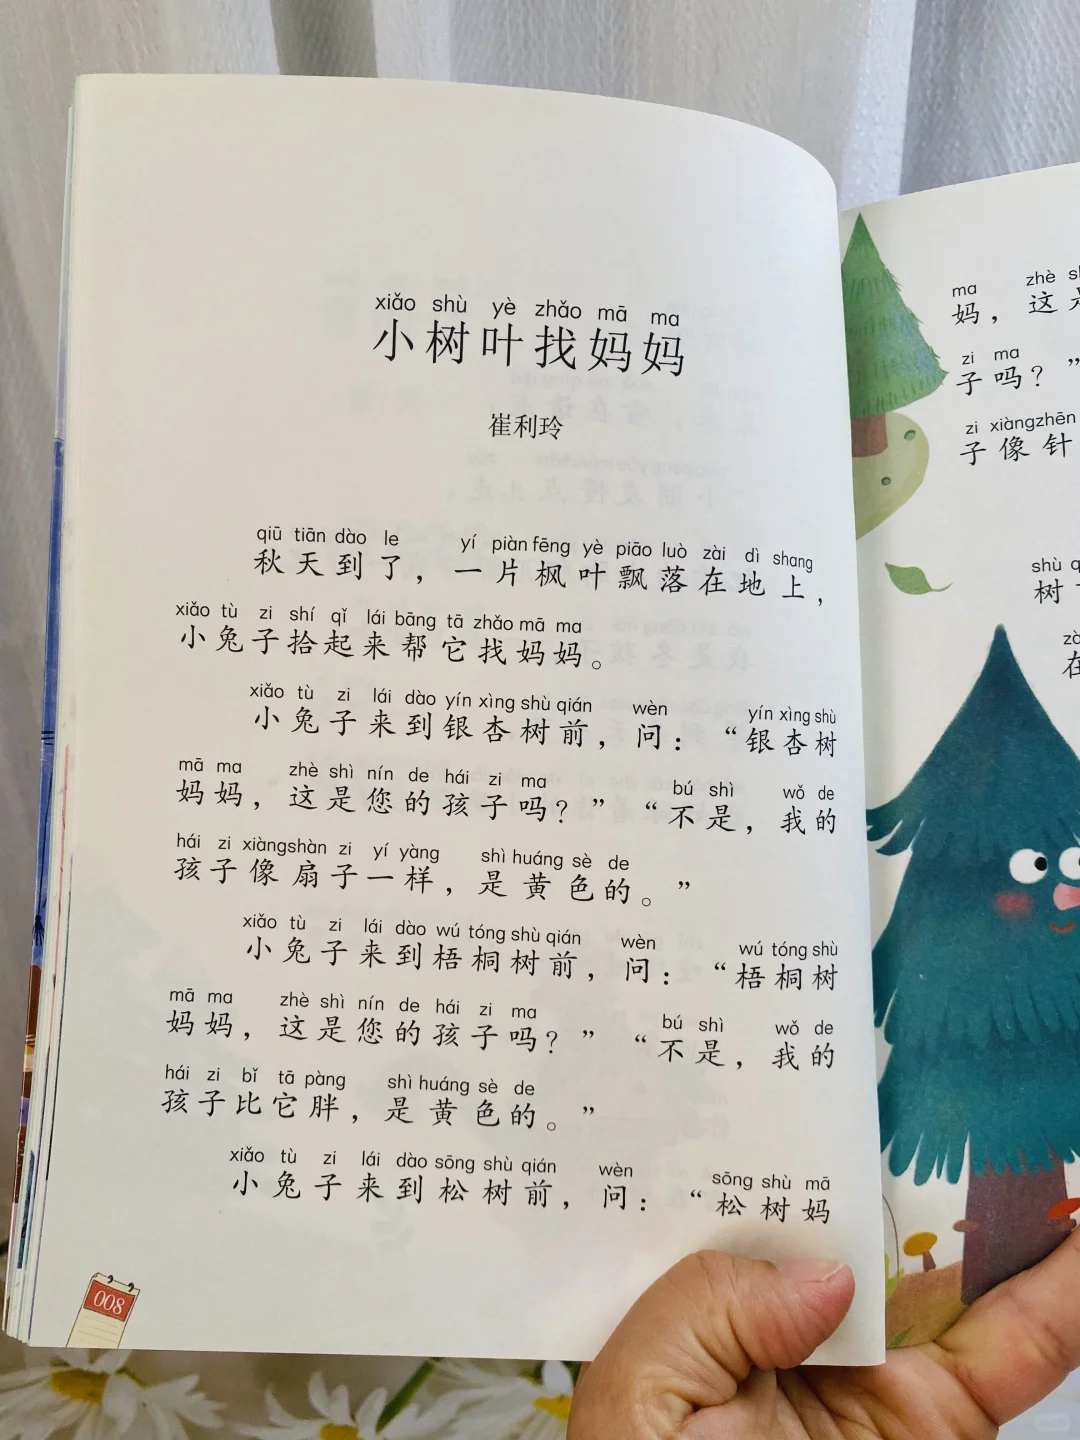 xiǎo shù yè zhǎo mā ma
小树叶找妈妈
崔利玲
qiū tiān dào le yí piàn fēng yè piāo luò zài dì shang
秋天到了，一片枫叶飘落在地上，
xiǎo tù zi shí qǐ lái bāng tā zhǎo mā ma
小兔子拾起来帮它找妈妈。
xiǎo tù zi lái dào yín xìng shù qián wèn yín xìng shù
小兔子来到银杏树前，问：“银杏树
mā ma zhè shì nín de hái zi ma bú shì wǒ de
妈妈，这是您的孩子吗？”“不是，我的
hái zi xiàng shàn zi yí yàng shì huáng sè de
孩子像扇子一样，是黄色的。”
xiǎo tù zi lái dào wú tóng shù qián wèn wú tóng shù
小兔子来到梧桐树前，问：“梧桐树
mā ma zhè shì nín de hái zi ma bú shì wǒ de
妈妈，这是您的孩子吗？”“不是，我的
hái zi bǐ tā pàng shì huáng sè de
孩子比它胖，是黄色的。”
xiǎo tù zi lái dào sōng shù qián wèn sōng shù mā
小兔子来到松树前，问：“松树妈
008
ma zhè
妈，这
zi ma
子吗？”
zi xiàng zhēn
子像针
shù
树